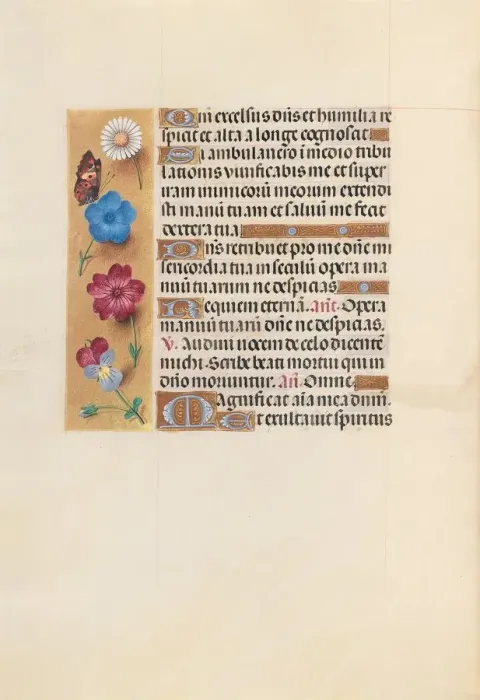 Qm excelsus dñs et humilia re
spicit et alta a longe cognoscit
Si ambulauero i medio tribu
lationis viuificabis me et super
iram inimicorũ meorum extendi
sti manũ tuam et saluũ me fecit
dextera tua
Dñs retribuet pro me dñe mi
sericordia tua in seculũ opera ma
nuũ tuarum ne despicias
Requiem eternã. Añt. Opera
manuũ tuarũ dñe ne despicias.
V. Audiui uocem de celo dicentẽ
michi. Scribe beati mortui qui in
dño moriuntur. Añ. Omne
Magnificat aĩa mea dnm.
Et exultauit spiritus